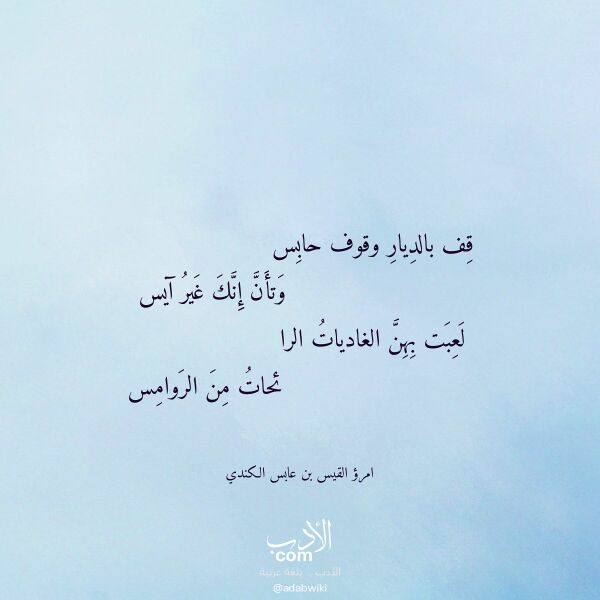 قِف بالدِيارِ وقوف حابِس
وَتأَنَّ إِنَّكَ غَيرُ آيس
لَعِبَت بِهِنَّ الغادياتُ الرا
ئحاتُ مِنَ الرَوامِس
امرؤ القيس بن عابس الكندي
الأدب
com
الأدب .. بلغة عربية
@adabwiki